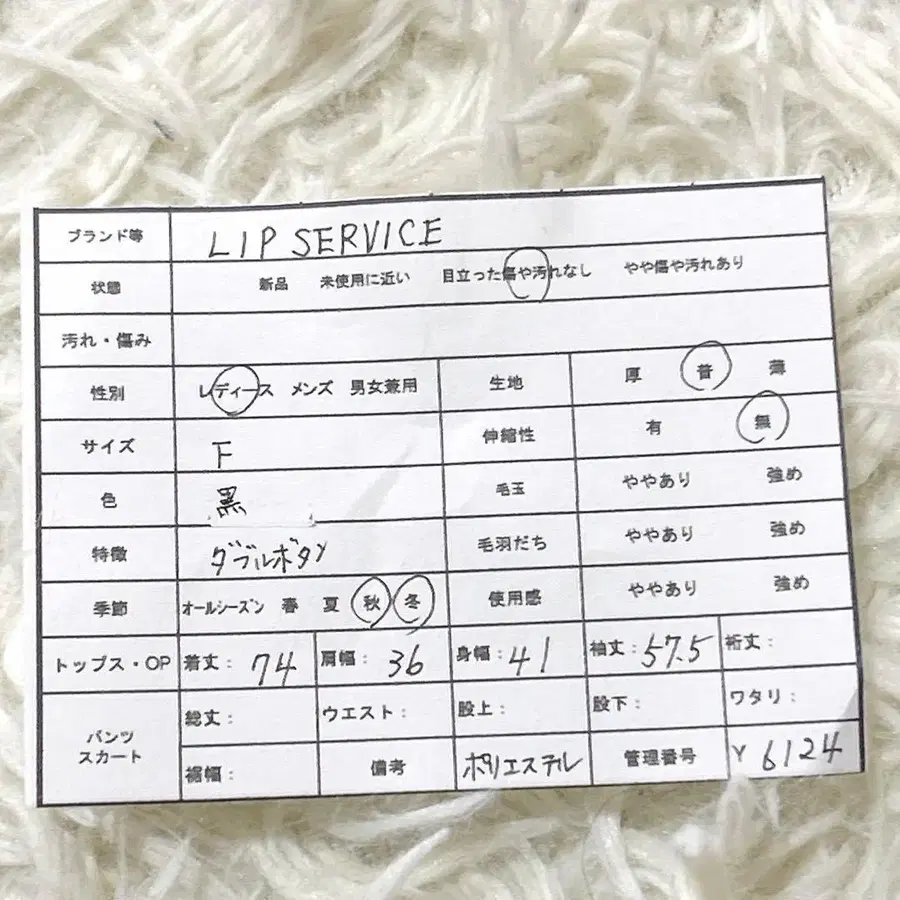 ブランド等 LIP SERVICE
状態 新品 未使用に近い 目立った傷や汚れなし やや傷や汚れあり
汚れ・傷み
性別 レディース メンズ 男女兼用 生地 厚 普 薄
サイズ F 伸縮性 有 無
色 黒 毛玉 ややあり 強め
特徴 ダブルボタン 毛羽だち ややあり 強め
季節 オールシーズン 春 夏 秋 冬 使用感 ややあり 強め
トップス・OP 着丈: 74 肩幅: 36 身幅: 41 袖丈: 57.5 裄丈:
パンツ スカート 総丈: ウエスト: 股上: 股下: ワタリ:
裾幅: 備考 ポリエステル 管理番号 Y6124